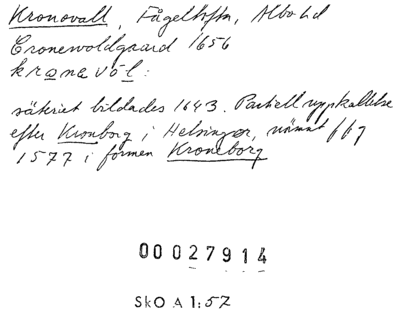 Kronovall, Fågeltofta, Albo hd
Cronewoldgaard 1656
kronevol:
säteriet bildades 1643. Partiell uppkallelse
efter Kronborg i Helsingør, nämnt ffg
1577 i formen Kroneborg
00027914
SkO A 1:57